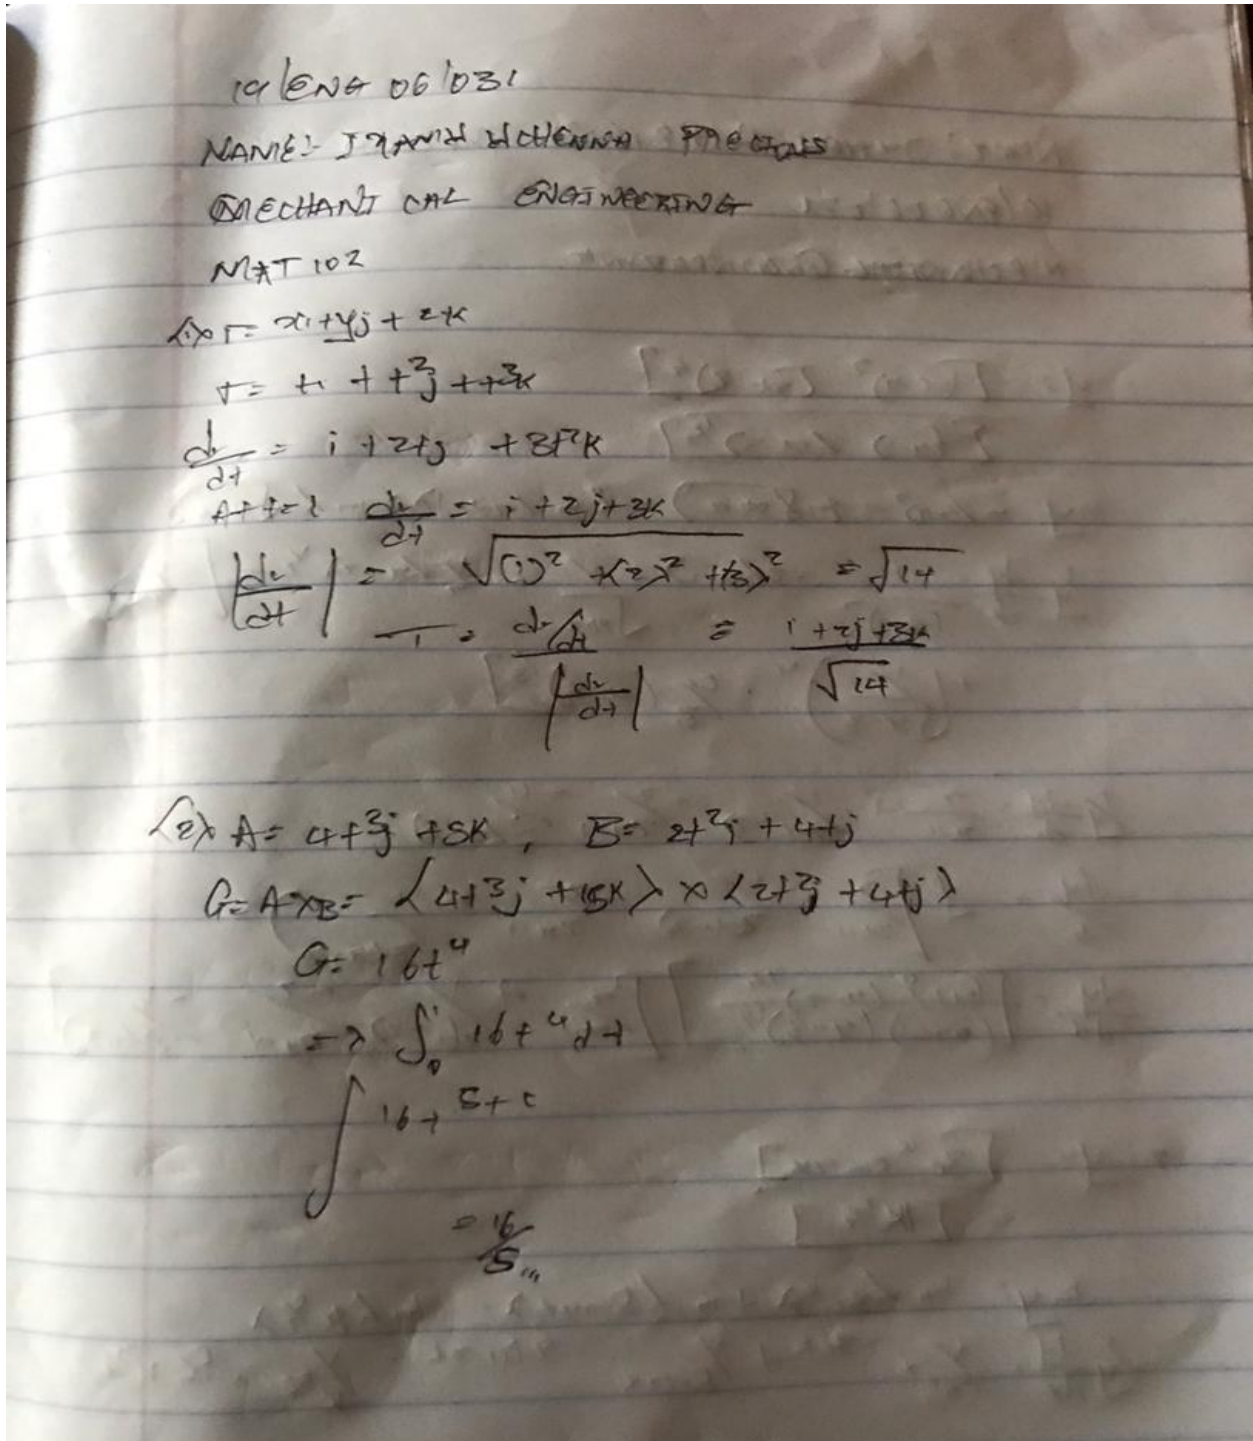 19/ENG 06/031
NAME:- UCHENNA PRECIOUS
MECHANICAL ENGINEERING
MAT 102
(1) r = xi + yj + zk
r = ti + t²j + t³k
dr/dt = i + 2tj + 3t²k
At t=1 dr/dt = i + 2j + 3k
|dr/dt| = √(1)² + (2)² + (3)² = √14
T = dr/dt / |dr/dt| = i + 2j + 3k / √14
(2) A = 4t³j + 5k , B = 2t²i + 4tj
G = A×B = (4t³j + 5k) × (2t²j + 4tj)
G = 16t⁴
=> ∫₀¹ 16t⁴dt
∫ 16t 5+c
= 16/5